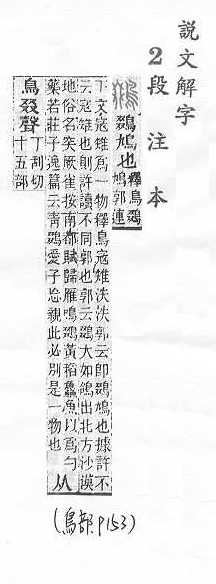 說文解字
2段注本
鵽鳩也釋鳥鵽
鳩郭連
下文寇雉爲一物釋鳥寇雉泆泆郭云即鵽鳩也據許不
云寇雉也則許讀不同郭也郭云鵽大如鴿出北方沙漠
地俗名突厥雀按南都賦歸雁鳴鵽黃稻鱻魚以爲勺
藥若莊子逸篇云靑鵽愛子忘親此必別是一物也从
鳥叕聲丁刮切
十五部
(鳥部p153)